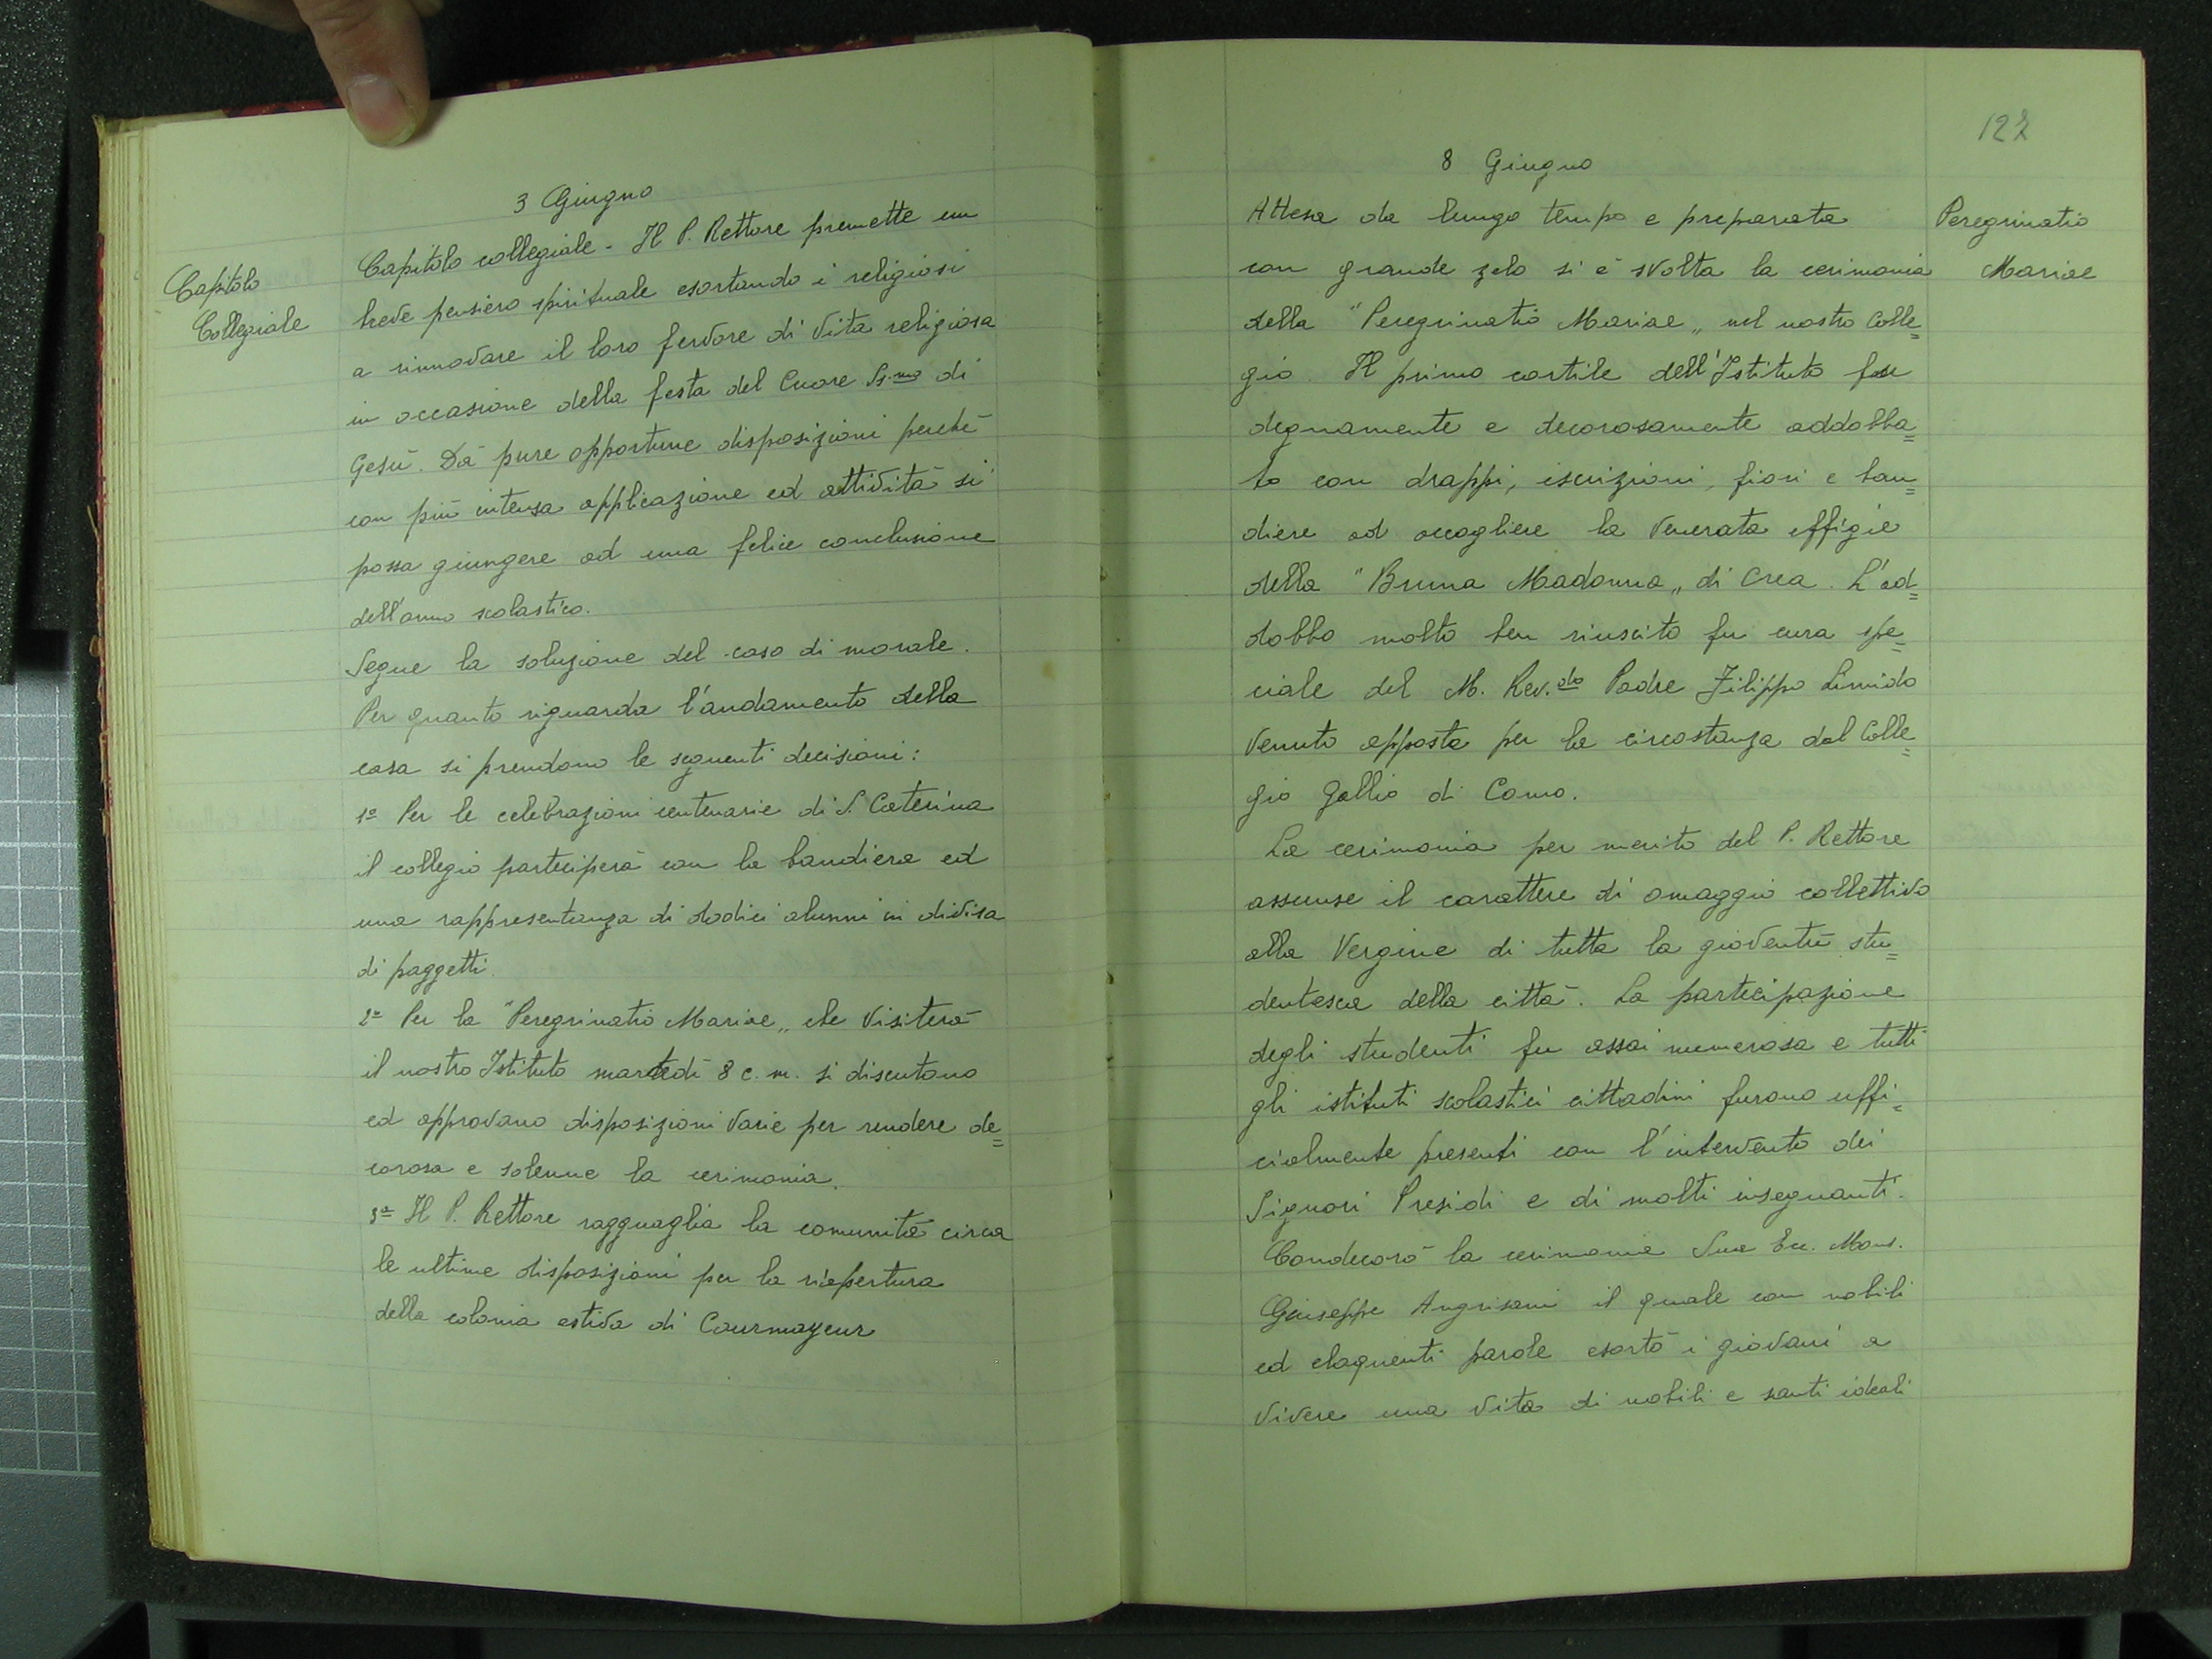 3 Giugno
Capitolo
Collegiale
Capitolo collegiale - Il P. Rettore premette un
breve pensiero spirituale esortando i religiosi
a rinnovare il loro fervore di vita religiosa
in occasione della festa del Cuore SS.mo di
Gesù. Dà pure opportune disposizioni perchè
con più intensa applicazione ed attività si
possa giungere ad una felice conclusione
dell'anno scolastico.
Segue la soluzione del caso di morale.
Per quanto riguarda l'andamento della
casa si prendono le seguenti decisioni:
1º Per le celebrazioni centenarie di S. Caterina
il collegio parteciperà con la bandiera ed
una rappresentanza di dodici alunni in divisa
di paggetti.
2º Per la "Peregrinatio Mariae„ che visiterà
il nostro Istituto martedì 8 c. m. si discutono
ed approvano disposizioni varie per rendere de=
corosa e solenne la cerimonia.
3º Il P. Rettore ragguaglia la comunità circa
le ultime disposizioni per la riapertura
della colonia estiva di Courmayeur
122
8 Giugno
Peregrinatio
Mariae
Attesa da lungo tempo e preparata
con grande zelo si è svolta la cerimonia
della "Peregrinatio Mariae„ nel nostro Colle=
gio. Il primo cortile dell'Istituto fu
degnamente e decorosamente addobba=
to con drappi, iscrizioni, fiori e ban=
diere ad accogliere la venerata effigie
della "Bruna Madonna„ di Crea. L'ad=
dobbo molto ben riuscito fu cura spe=
ciale del M. Rev.do Padre Filippo Limido
venuto apposta per la circostanza dal Colle=
gio Gallio di Como.
La cerimonia per merito del P. Rettore
assunse il carattere di omaggio collettivo
alla Vergine di tutta la gioventù stu=
dentesca della città. La partecipazione
degli studenti fu assai numerosa e tutti
gli istituti scolastici cittadini furono uffi=
cialmente presenti con l'intervento dei
Signori Presidi e di molti insegnanti.
Condecorò la cerimonia Sua Ecc. Mons.
Giuseppe Angrisani il quale con nobili
ed eloquenti parole esortò i giovani a
vivere una vita di nobili e santi ideali